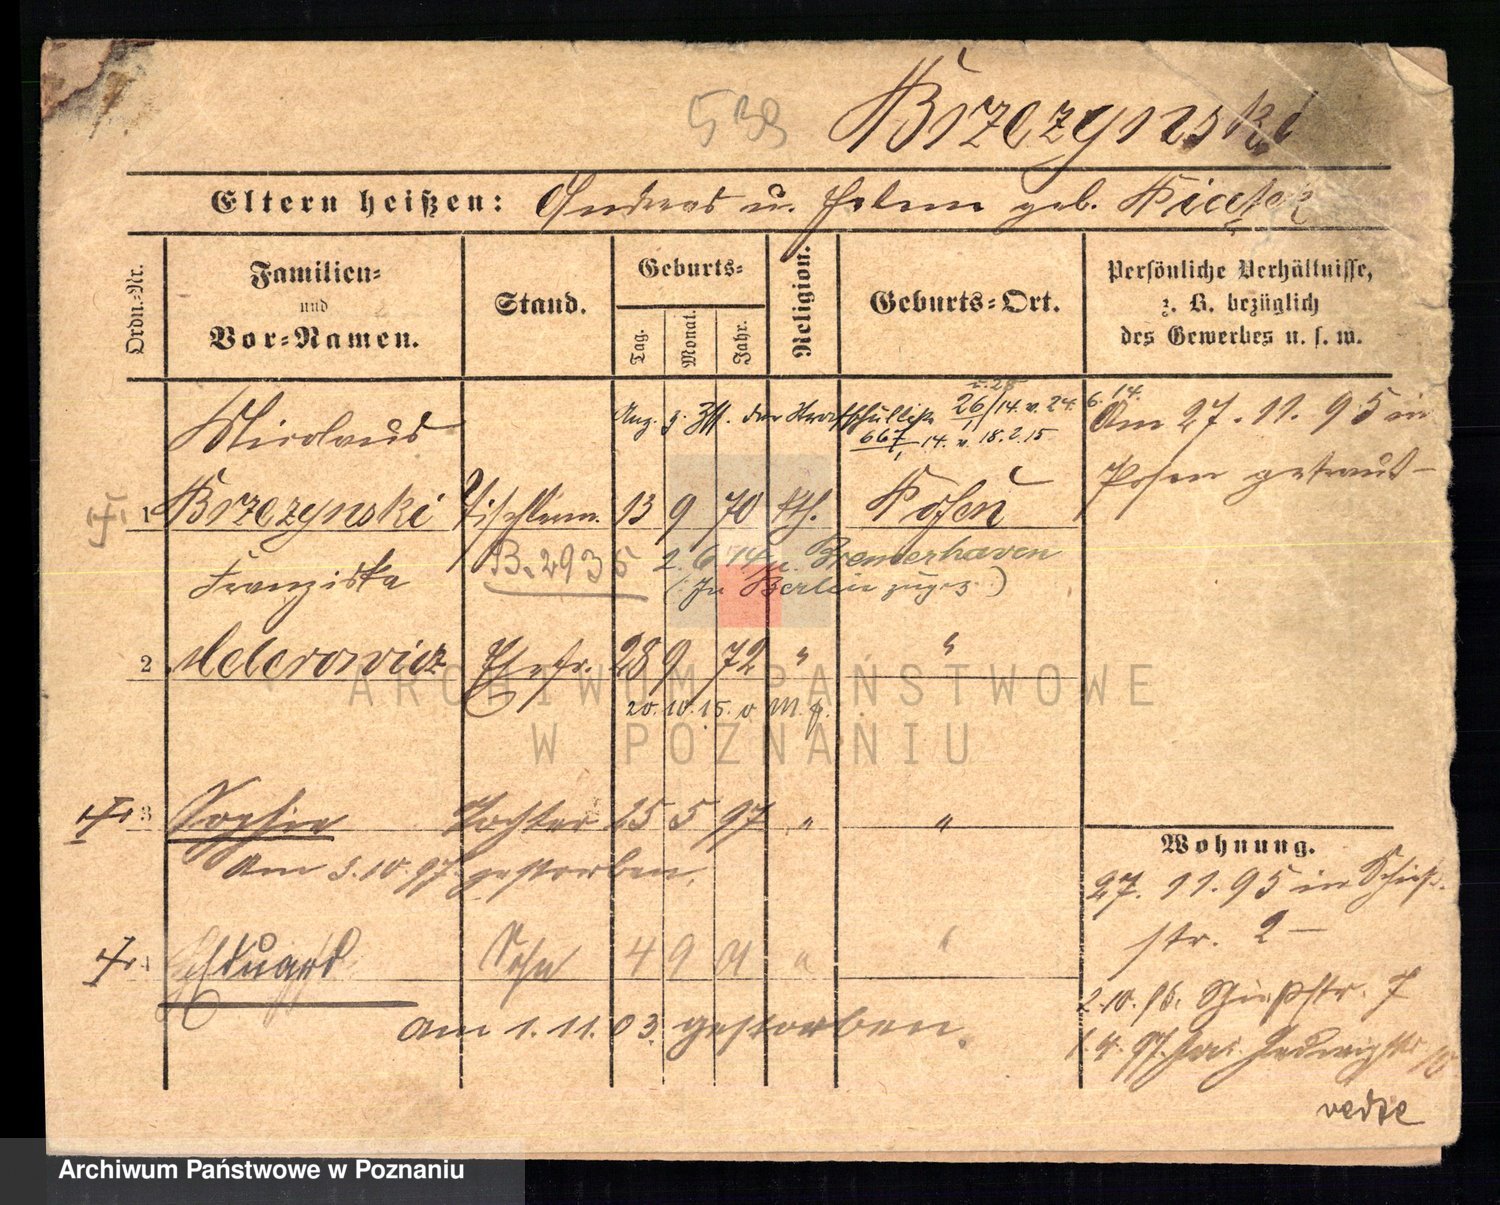 538 Brzezynski
Eltern heißen: Andreas u. Helene geb.
Ordn.-Nr.
Familien-
und
Vor-Namen.
Stand.
Geburts-
Tag.
Monat.
Jahr.
Religion.
Geburts-Ort.
Persönliche Verhältnisse,
z. B. bezüglich
des Gewerbes u. s. w.
v. 25 6. 14.
Nicolaus
26/14. v. 24.
667/14. v. 18.2.15
Am 27. 11. 95 in
Posen getraut –
1 Brzezynski 13 9 70 kth. Posen
B. 2935 2. 6. 14 n. Bremerhaven
Franziska
(In Berlin zugez.)
2 Ehefr. 28 9 72 " "
20. 10. 15. v
3 Sophie Tochter 25 5 97 " "
Am 3. 10. 97. gestorben.
Wohnung.
27. 11. 95 in Schieß-
str. 2 –
4 Eduard Sohn 4 9 01 " "
am 1. 11. 03. gestorben.
2. 10. 96. Schießstr. 7
1. 4. 97.
ARCHIWUM PAŃSTWOWE
W POZNANIU
Archiwum Państwowe w Poznaniu